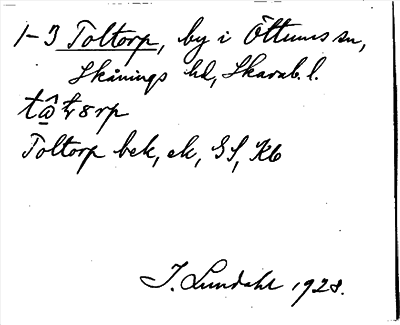 1-3 Toltorp, by i Öttums sn,
Skånings hd, Skarab. l.
Toltorp bek, ek, GS, Kb
J. Lundahl 1928.